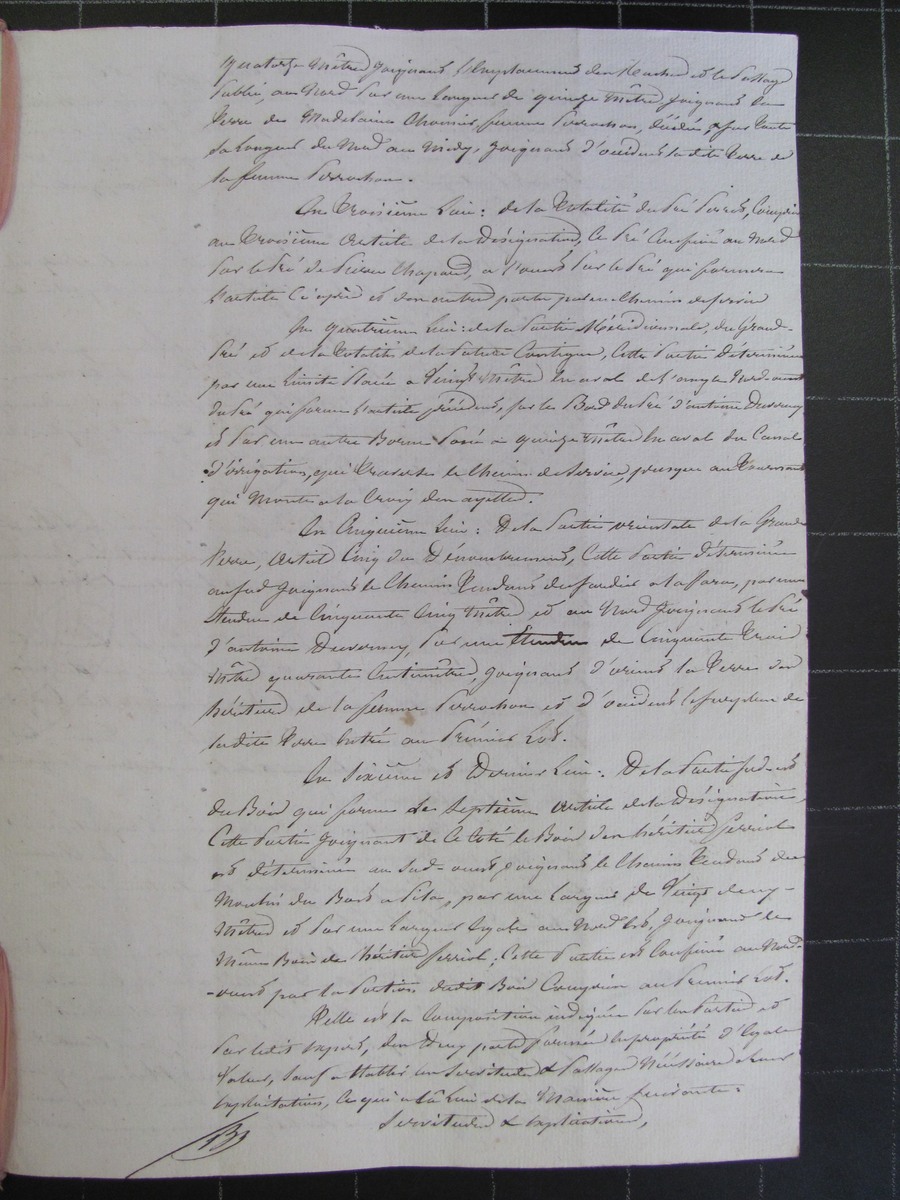 quatorze mètres joignant l'emplacement des Ruches et le Passage
Public, au Nord Par une Largeur de quinze mètres joignant la
Terre de Madelaine Chomier femme Perrochon, Sur toute
Sa Longueur du Nord au Midy, joignant d'occident ladite Terre de
la femme Perrochon.
En Troisième Lieu : de la Totalité du Pré Compris
au Troisième article de la Désignation, Ce Pré Confiné au Nord
Par le Pré de Pierre Chapard, a l'ouest Par le Pré qui formera
l'article Ci après et des autres parts par un Chemin de service
En quatrième Lieu : de la Partie Méridionnale, du Grand-
Pré et de la Totalité de la Pature Contigue, Cette Partie déterminée
par une Limite Placée a Vingt mètres en aval de l'angle Nord-ouest
du Pré qui forme l'article précédent, sur le Bord du Pré d'antoine Duvernay
et Par une autre Borne Posée a quinze mètres en aval du Canal
d'irrigation, qui Traverse le Chemin de Service, presque au Tournant
qui Monte a la Croix des ayettes.
En Cinquième Lieu : De la Partie orientale de la Grande
Terre, article Cinq du Dénombrement, Cette Partie déterminée
au sud joignant le Chemin Tendant du a par une
Etendue de Cinquante Cinq mètres et au Nord joignant le Pré
d'antoine Duvernay, Par une Etendue de Cinquante Trois
mètres quarante Centimètres, joignant d'orient la Terre des
héritiers de la femme Perrochon et d'occident le surplus de
ladite Terre Entrée au Premier Lot.
En Sixième et Dernier Lieu : De la Partie sud-est
du Bois qui forme Le Septième article de la Désignation,
Cette Partie joignant de Ce Coté le Bois des héritiers Ferriol
est déterminée au Sud-ouest joignant le Chemin Tendant du
Moulin du Bost a par une Largeur de Vingt deux-
Mètres et Par une Largeur Egale au Nord Est, joignant le
Même Bois des héritiers Ferriol ; Cette Partie est Confinée au Nord-
-ouest par la Portion dudit Bois Comprise au Premier Lot.
Telle est la Composition indiquée Par les Parties et
Par ledit Expert, des Deux parts formées en propriété d'Egale
Valeur, Sauf a Etablir les Servitudes & Passages Nécessaires a leur
exploitation, Ce qui a Eu Lieu de la Manière suivante :
Servitudes & explications,